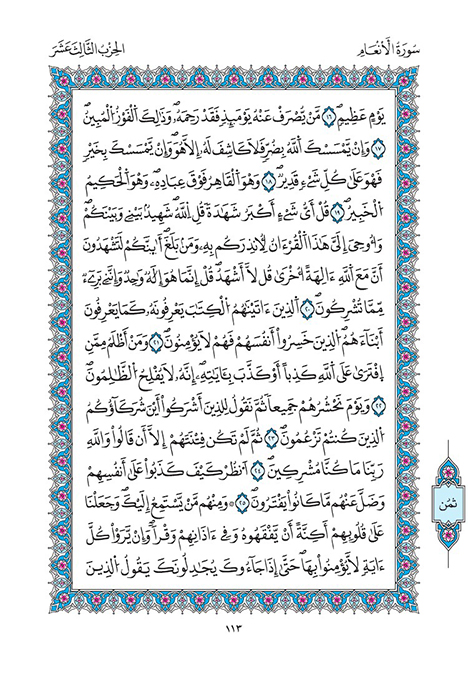 سُورَةُ الْأَنْعَامِ
الحِزْبُ الثَّالِثَ عَشَرَ
يَوْمٍ عَظِيمٍ ١٦ مَّنْ يُّصْرَفْ عَنْهُ يَوْمَئِذٍ فَقَدْ رَحِمَهُۥ وَذَٰلِكَ اَلْفَوْزُ الْمُبِينُ
١٧ وَإِنْ يَّمْسَسْكَ اَللَّهُ بِضُرٍّ فَلَا كَاشِفَ لَهُۥ إِلَّا هُوَ وَإِنْ يَّمْسَسْكَ بِخَيْرٍ
فَهُوَ عَلَىٰ كُلِّ شَيْءٍ قَدِيرٌ ١٨ وَهُوَ اَلْقَاهِرُ فَوْقَ عِبَادِهِۦ وَهُوَ اَلْحَكِيمُ
اُلْخَبِيرُ ١٩ قُلْ أَيُّ شَيْءٍ أَكْبَرُ شَهَٰدَةً قُلِ اِللَّهُ شَهِيدٌۢ بَيْنِي وَبَيْنَكُمْ
وَأُوحِيَ إِلَيَّ هَٰذَا اَلْقُرْءَانُ لِأُنذِرَكُم بِهِۦ وَمَنۢ بَلَغَ أَئِنَّكُمْ لَتَشْهَدُونَ
أَنَّ مَعَ اَللَّهِ ءَالِهَةً أُخْرَىٰ قُل لَّا أَشْهَدُ قُلْ إِنَّمَا هُوَ إِلَٰهٌ وَٰحِدٌ وَإِنَّنِي بَرِيٓءٌ
مِّمَّا تُشْرِكُونَ ٢٠ اَلذِينَ ءَاتَيْنَٰهُمُ اُلْكِتَٰبَ يَعْرِفُونَهُۥ كَمَا يَعْرِفُونَ
أَبْنَآءَهُمُ اُلذِينَ خَسِرُوٓاْ أَنفُسَهُمْ فَهُمْ لَا يُؤْمِنُونَ ٢١ وَمَنْ أَظْلَمُ مِمَّنِ
اِفْتَرَىٰ عَلَى اَللَّهِ كَذِبًا أَوْ كَذَّبَ بِـَٔايَٰتِهِۦ إِنَّهُۥ لَا يُفْلِحُ اُلظَّٰلِمُونَ
٢٢ وَيَوْمَ نَحْشُرُهُمْ جَمِيعًا ثُمَّ نَقُولُ لِلذِينَ أَشْرَكُوٓاْ أَيْنَ شُرَكَآؤُكُمُ
اُلذِينَ كُنتُمْ تَزْعُمُونَ ٢٣ ثُمَّ لَمْ تَكُن فِتْنَتَهُمْ إِلَّا أَن قَالُواْ وَاللَّهِ
رَبِّنَا مَا كُنَّا مُشْرِكِينَ ٢٤ اَنظُرْ كَيْفَ كَذَبُواْ عَلَىٰٓ أَنفُسِهِمْ
وَضَلَّ عَنْهُم مَّا كَانُواْ يَفْتَرُونَ ٢٥ وَمِنْهُم مَّنْ يَّسْتَمِعُ إِلَيْكَ وَجَعَلْنَا
عَلَىٰ قُلُوبِهِمْ أَكِنَّةً أَنْ يَّفْقَهُوهُ وَفِي ءَاذَانِهِمْ وَقْرًا وَإِنْ يَّرَوْاْ كُلَّ
ءَايَةٍ لَّا يُؤْمِنُواْ بِهَا حَتَّىٰٓ إِذَا جَآءُوكَ يُجَٰدِلُونَكَ يَقُولُ اُلذِينَ
ثُمُن
١١٣